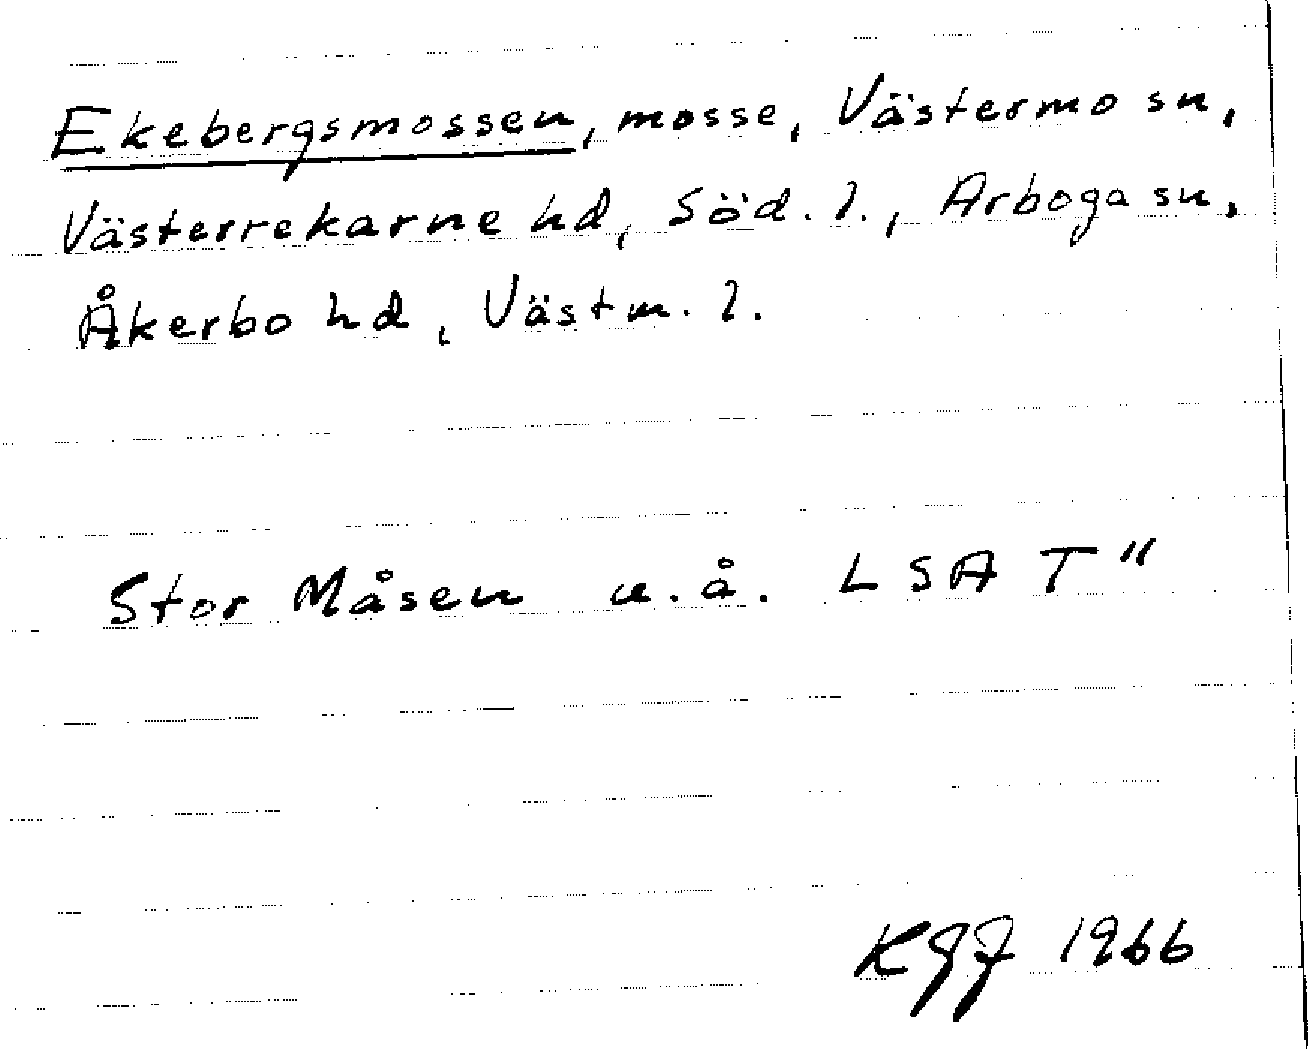 Ekebergsmossen, mosse, Västermo sn,
Västerrekarne hd, Söd. l., Arboga sn,
Åkerbo hd, Västm. l.
Stor Måsen u.å. LSA T"
KGJ 1966